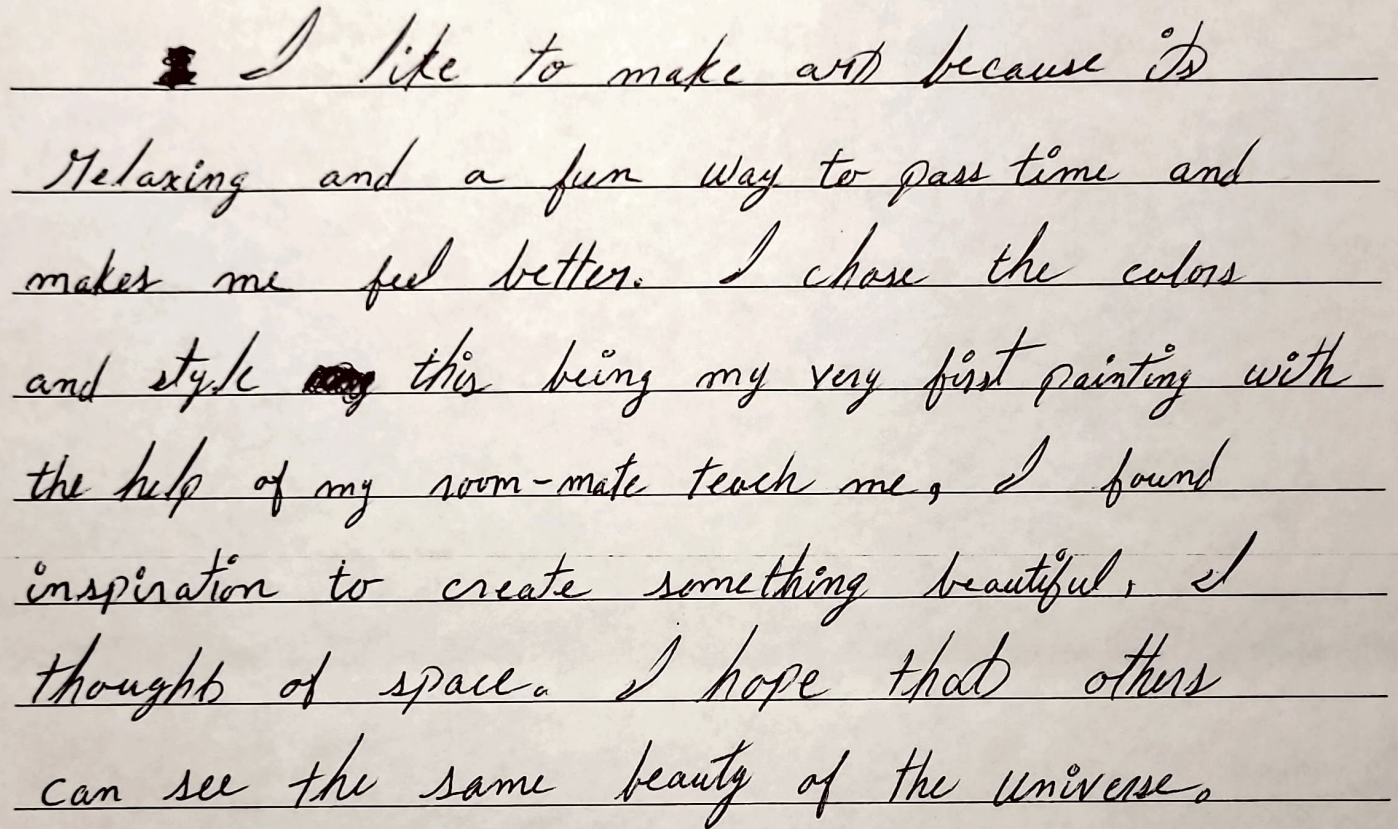 I like to make art because its
relaxing and a fun way to pass time and
makes me feel better. I chose the colors
and style this being my very first painting with
the help of my room-mate teach me, I found
inspiration to create something beautiful, I
thought of space. I hope that others
can see the same beauty of the universe.